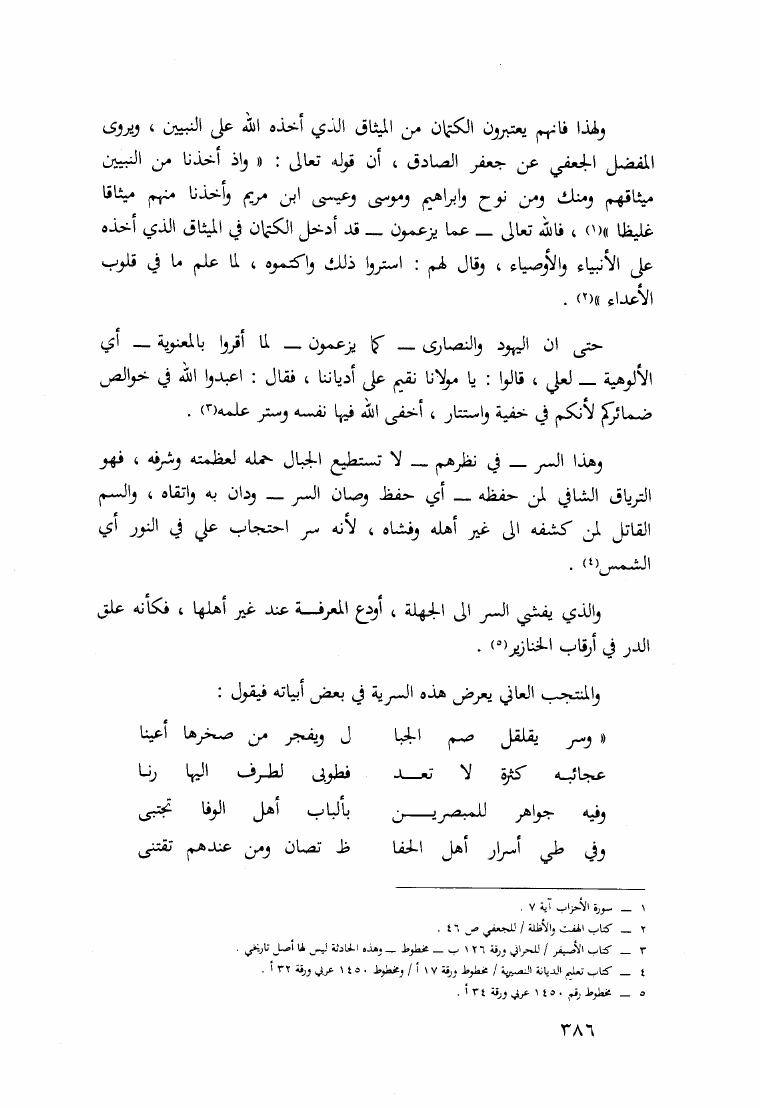 ولهذا فانهم يعتبرون الكتمان من الميثاق الذي أخذه الله على النبيين ، ويروى
المفضل الجعفي عن جعفر الصادق ، أن قوله تعالى : « واذ أخذنا من النبيين
ميثاقهم ومنك ومن نوح وابراهيم وموسى وعيسى ابن مريم وأخذنا منهم ميثاقا
غليظا »(١) ، فالله تعالى – عما يزعمون – قد أدخل الكتمان في الميثاق الذي أخذه
على الأنبياء والأوصياء ، وقال لهم : استروا ذلك واكتموه ، لما علم ما في قلوب
الأعداء »(٢) .
حتى ان اليهود والنصارى – كما يزعمون – لما أقروا بالمعنوية – أي
الألوهية – لعلي ، قالوا : يا مولانا نقيم على أدياننا ، فقال : اعبدوا الله في خوالص
ضمائركم لأنكم في خفية واستتار ، أخفى الله فيها نفسه وستر علمه(٣) .
وهذا السر – في نظرهم – لا تستطيع الجبال حمله لعظمته وشرفه ، فهو
الترياق الشافي لمن حفظه – أي حفظ وصان السر – ودان به واتقاه ، والسم
القاتل لمن كشفه الى غير أهله وفشاه ، لأنه سر احتجاب علي في النور أي
الشمس(٤) .
والذي يفشي السر الى الجهلة ، أودع المعرفة عند غير أهلها ، فكأنه علق
الدر في أرقاب الخنازير(٥) .
والمنتجب العاني يعرض هذه السرية في بعض أبياته فيقول :
« وسر يقلقل صم الجبا ل ويفجر من صخرها أعينا
عجائبه كثرة لا تعد فطوبى لطرف اليها رنا
وفيه جواهر للمبصرين بألباب أهل الوفا تجتبى
وفي طي أسرار أهل الحفا ظ تصان ومن عندهم تقتنى
١ – سورة الأحزاب آية ٧ .
٢ – كتاب الهفت والأظلة / للجعفي ص ٤٦ .
٣ – كتاب الأصيفر / للحراني ورقة ١٢٦ ب – مخطوط – وهذه الحادثة ليس لها أصل تاريخي .
٤ – كتاب تعليم الديانة النصيرية / مخطوط ورقة ١٧ أ / ومخطوط ١٤٥٠ عربي ورقة ٣٢ أ .
٥ – مخطوط رقم ١٤٥٠ عربي ورقة ٣٤ أ .
٣٨٦